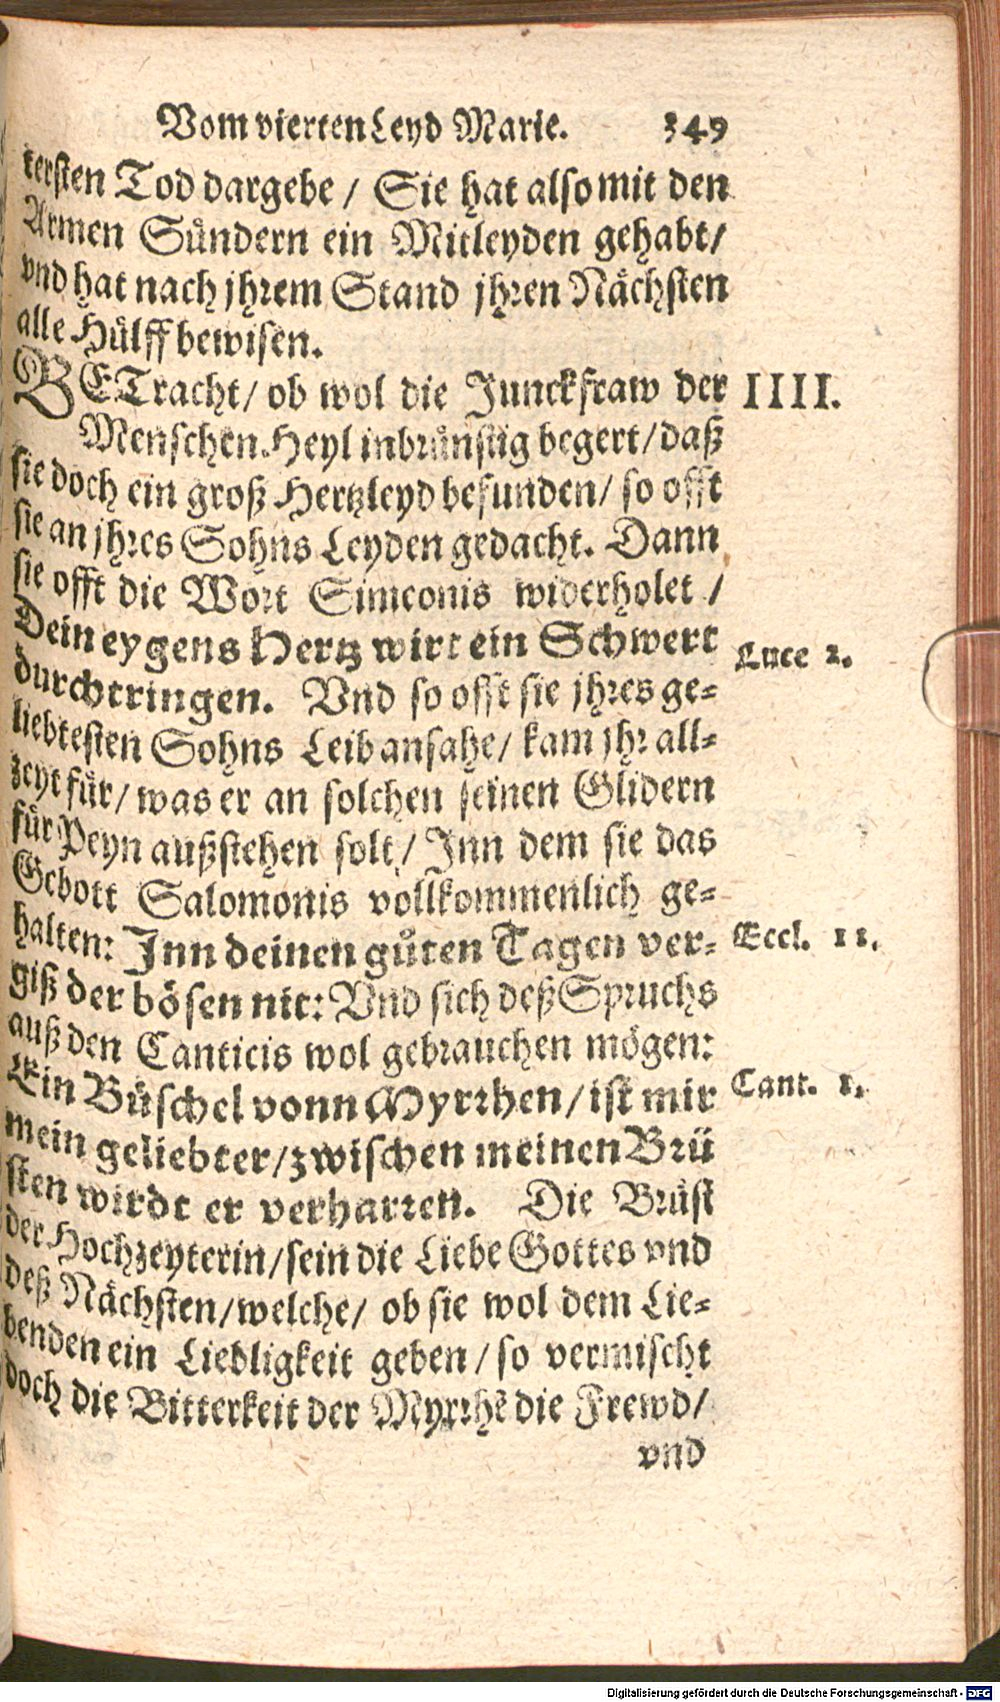 Vom vierten Leyd Marie. 349
kersten Tod dargebe / Sie hat also mit den
Armen Sündern ein Mitleyden gehabt /
vnd hat nach jhrem Stand jhren Nächsten
alle Hülff bewisen.
BETracht / ob wol die Junckfraw der IIII.
Menschen Heyl inbrünstig begert / daß
sie doch ein groß Hertzleyd befunden / so offt
sie an jhres Sohns Leyden gedacht. Dann
sie offt die Wort Simeonis widerholet /
Dein eygens Hertz wirt ein Schwert
Luce 2.
durchtringen. Vnd so offt sie jhres ge=
liebtesten Sohns Leib ansahe / kam jhr all=
zeyt für / was er an solchen seinen Glidern
für Peyn außstehen solt / Inn dem sie das
Gebott Salomonis vollkommenlich ge=
halten: Inn deinen gůten Tagen ver= Eccl. 11.
giß der bösen nit: Vnd sich deß Spruchs
auß den Canticis wol gebrauchen mögen:
Ein Büschel vonn Myrrhen / ist mir Cant. 1.
mein geliebter / zwischen meinen Brü
sten wirdt er verharren. Die Brüst
der Hochzeyterin / sein die Liebe Gottes vnd
deß Nächsten / welche / ob sie wol dem Lie=
benden ein Liebligkeit geben / so vermischt
doch die Bitterkeit der Myrrhē die Frewd /
vnd
Digitalisierung gefördert durch die Deutsche Forschungsgemeinschaft - DFG